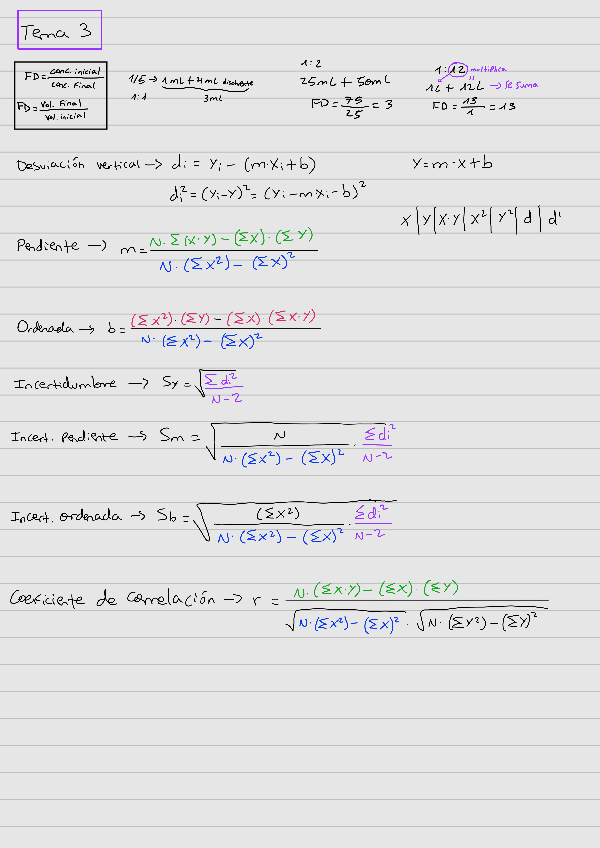 Tema 3
FD = conc. inicial / conc. Final
FD = Vol. Final / Vol. inicial
1/5 → 1 mL + 4 mL disolvente
1:1 3mL
1:2
25mL + 50mL
FD = 75/25 = 3
1:12 multiplica
1L + 12L → se suma
FD = 13/1 = 13
Desviación vertical → di = Yi − (m·Xi + b)
Y = m·x + b
di² = (Yi − Y)² = (Yi − mXi − b)²
X | Y | X·Y | X² | Y² | d | d'
Pendiente → m = N·Σ(X·Y) − (ΣX)·(ΣY) / N·(ΣX²) − (ΣX)²
Ordenada → b = (ΣX²)·(ΣY) − (ΣX)·(ΣX·Y) / N·(ΣX²) − (ΣX)²
Incertidumbre → Sy = √(Σdi² / N−2)
Incert. pendiente → Sm = √(N / N·(ΣX²) − (ΣX)² · Σdi² / N−2)
Incert. ordenada → Sb = √((ΣX²) / N·(ΣX²) − (ΣX)² · Σdi² / N−2)
Coeficiente de correlación → r = N·(ΣX·Y) − (ΣX)·(ΣY) / √(N·(ΣX²) − (ΣX)²) · √(N·(ΣY²) − (ΣY)²)